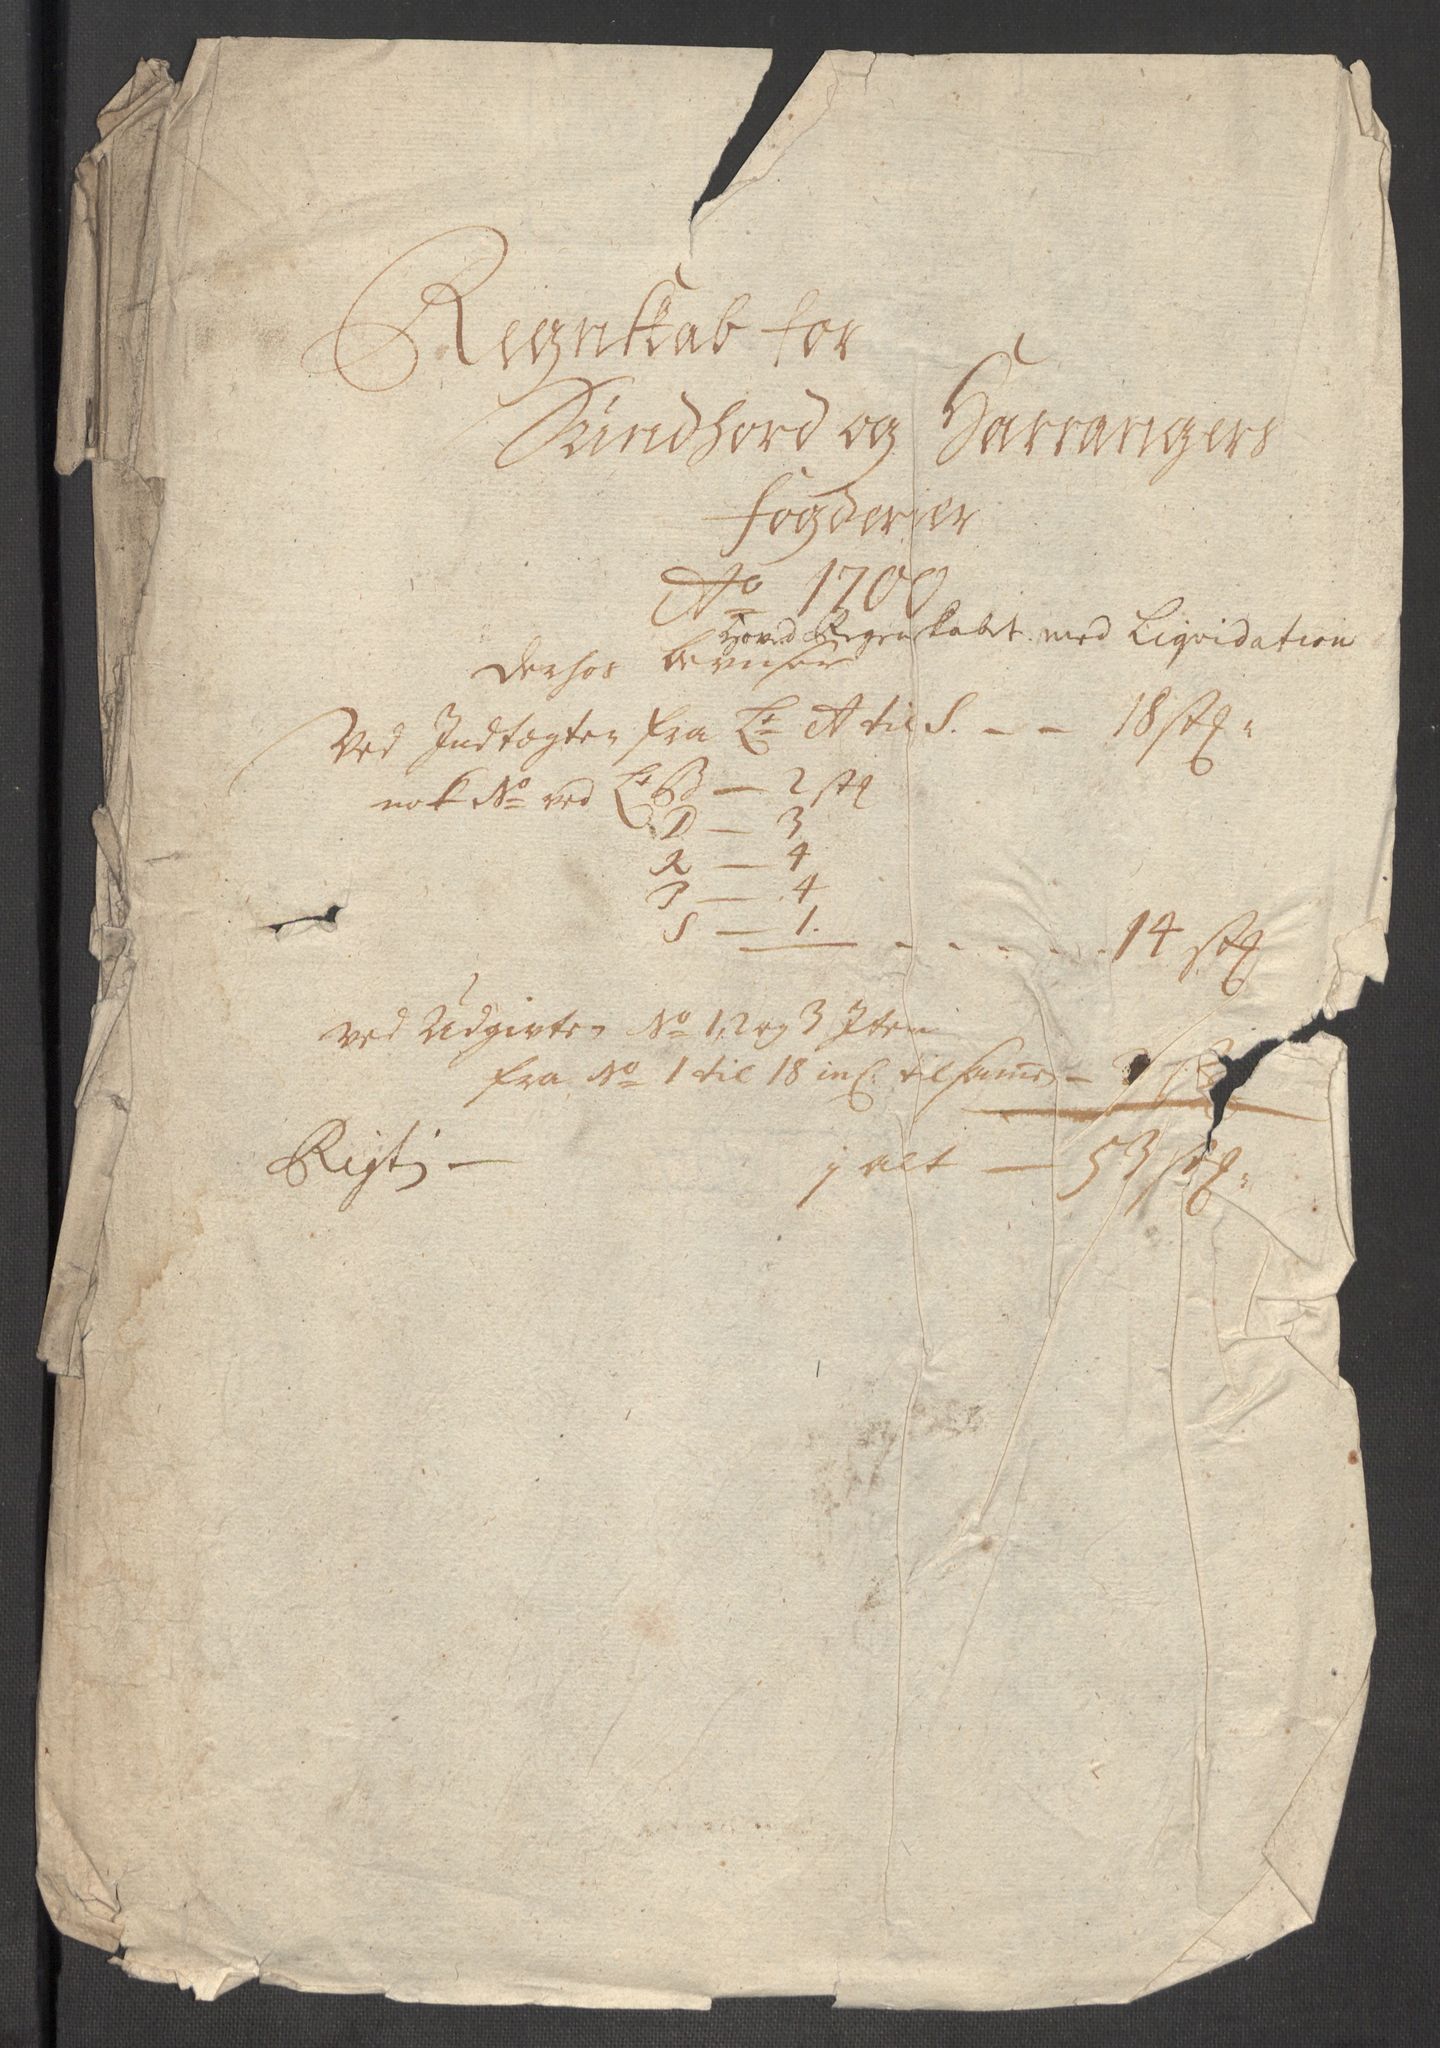 Regnskab for
Sundhord og Harrangers
fogderier
Ao 1700
Hoved Regenskabet med Liqvidation
derhos beviser
Ved Indtægten fra Lr A til S. — — 18 stk
nok No ved Lr B — 2 stk
D — 3
R — 4
— 4
S — 1. - - - - - 14 stk
ved Udgivten No 1, 2 og 3 Item
fra No 1 til 18 incl. tilsamen —
Rigti — j alt — 53 stk